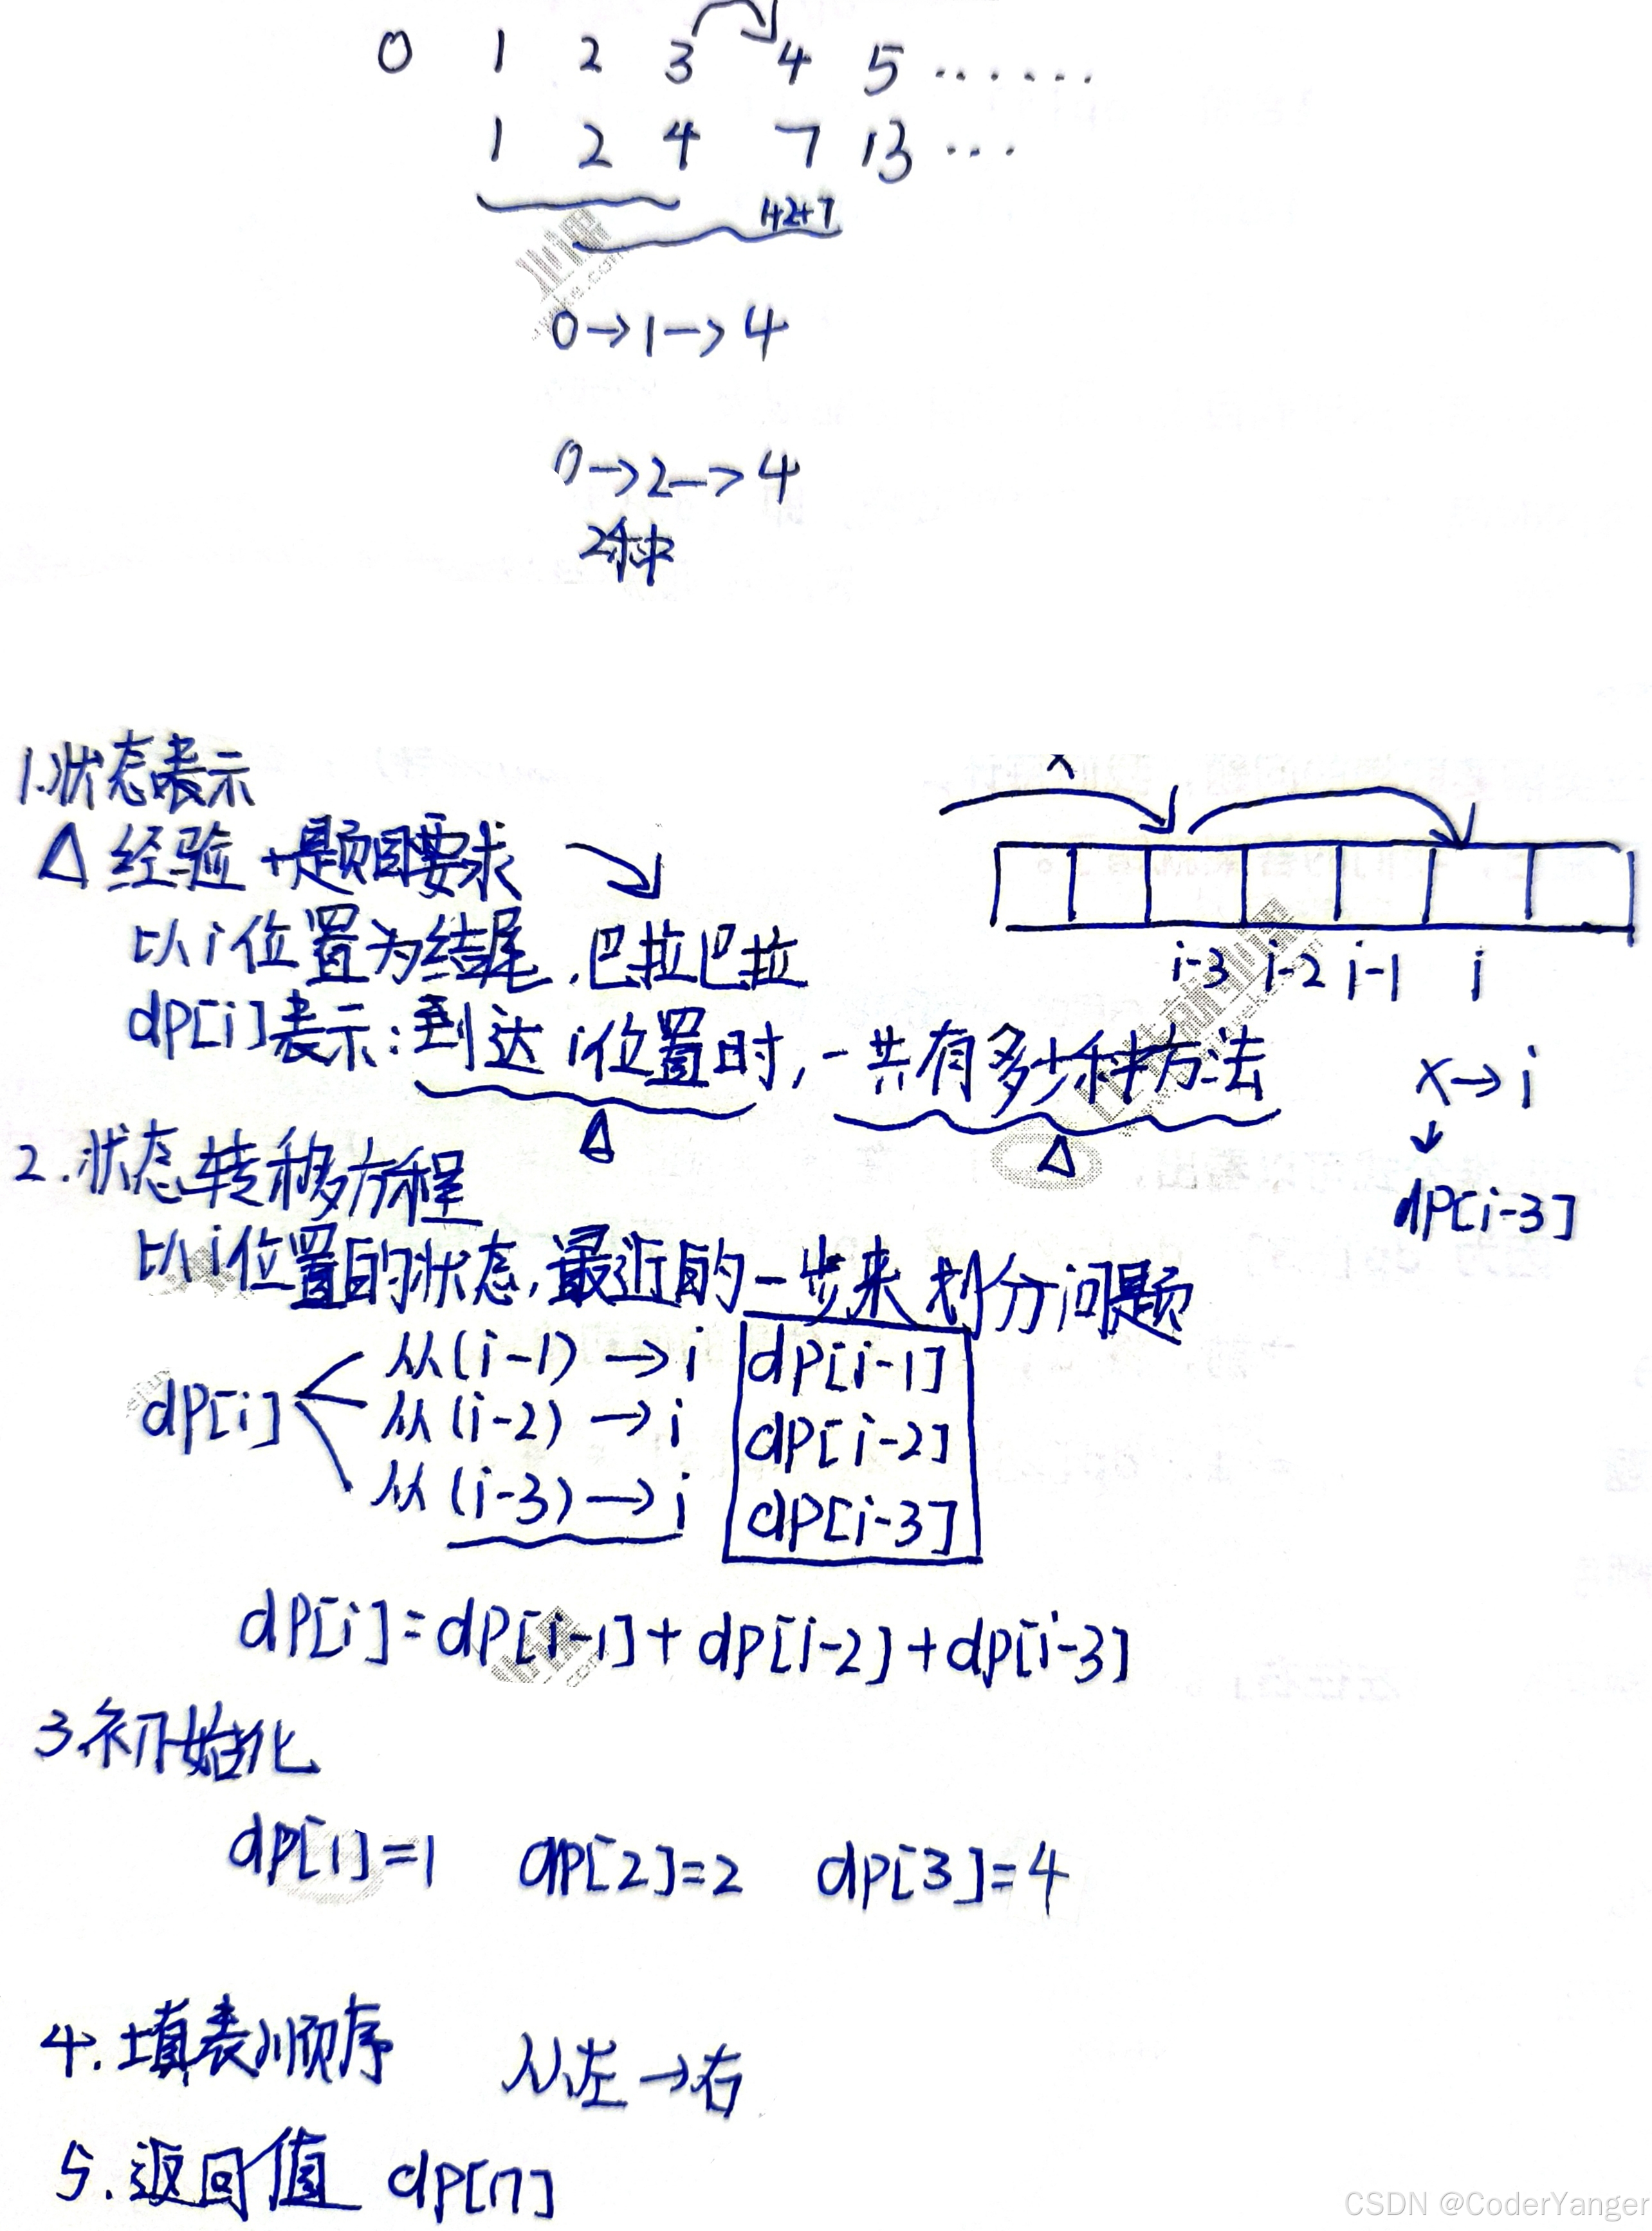 0 1 2 3 4 5 ......
1 2 4 7 13 ...
1+2+7
0→1→4
0→2→4
2种
1.状态表示
△ 经验+题目要求
以i位置为结尾,巴拉巴拉
dp[i]表示:到达i位置时,一共有多少种方法
△ △
x
i-3 i-2 i-1 i
x→i
↓
dp[i-3]
2.状态转移方程
以i位置的状态,最近的一步来划分问题
dp[i]
从(i-1)→i dp[i-1]
从(i-2)→i dp[i-2]
从(i-3)→i dp[i-3]
dp[i]=dp[i-1]+dp[i-2]+dp[i-3]
3.初始化
dp[1]=1 dp[2]=2 dp[3]=4
4.填表顺序 从左→右
5.返回值 dp[n]
CSDN @CoderYanger